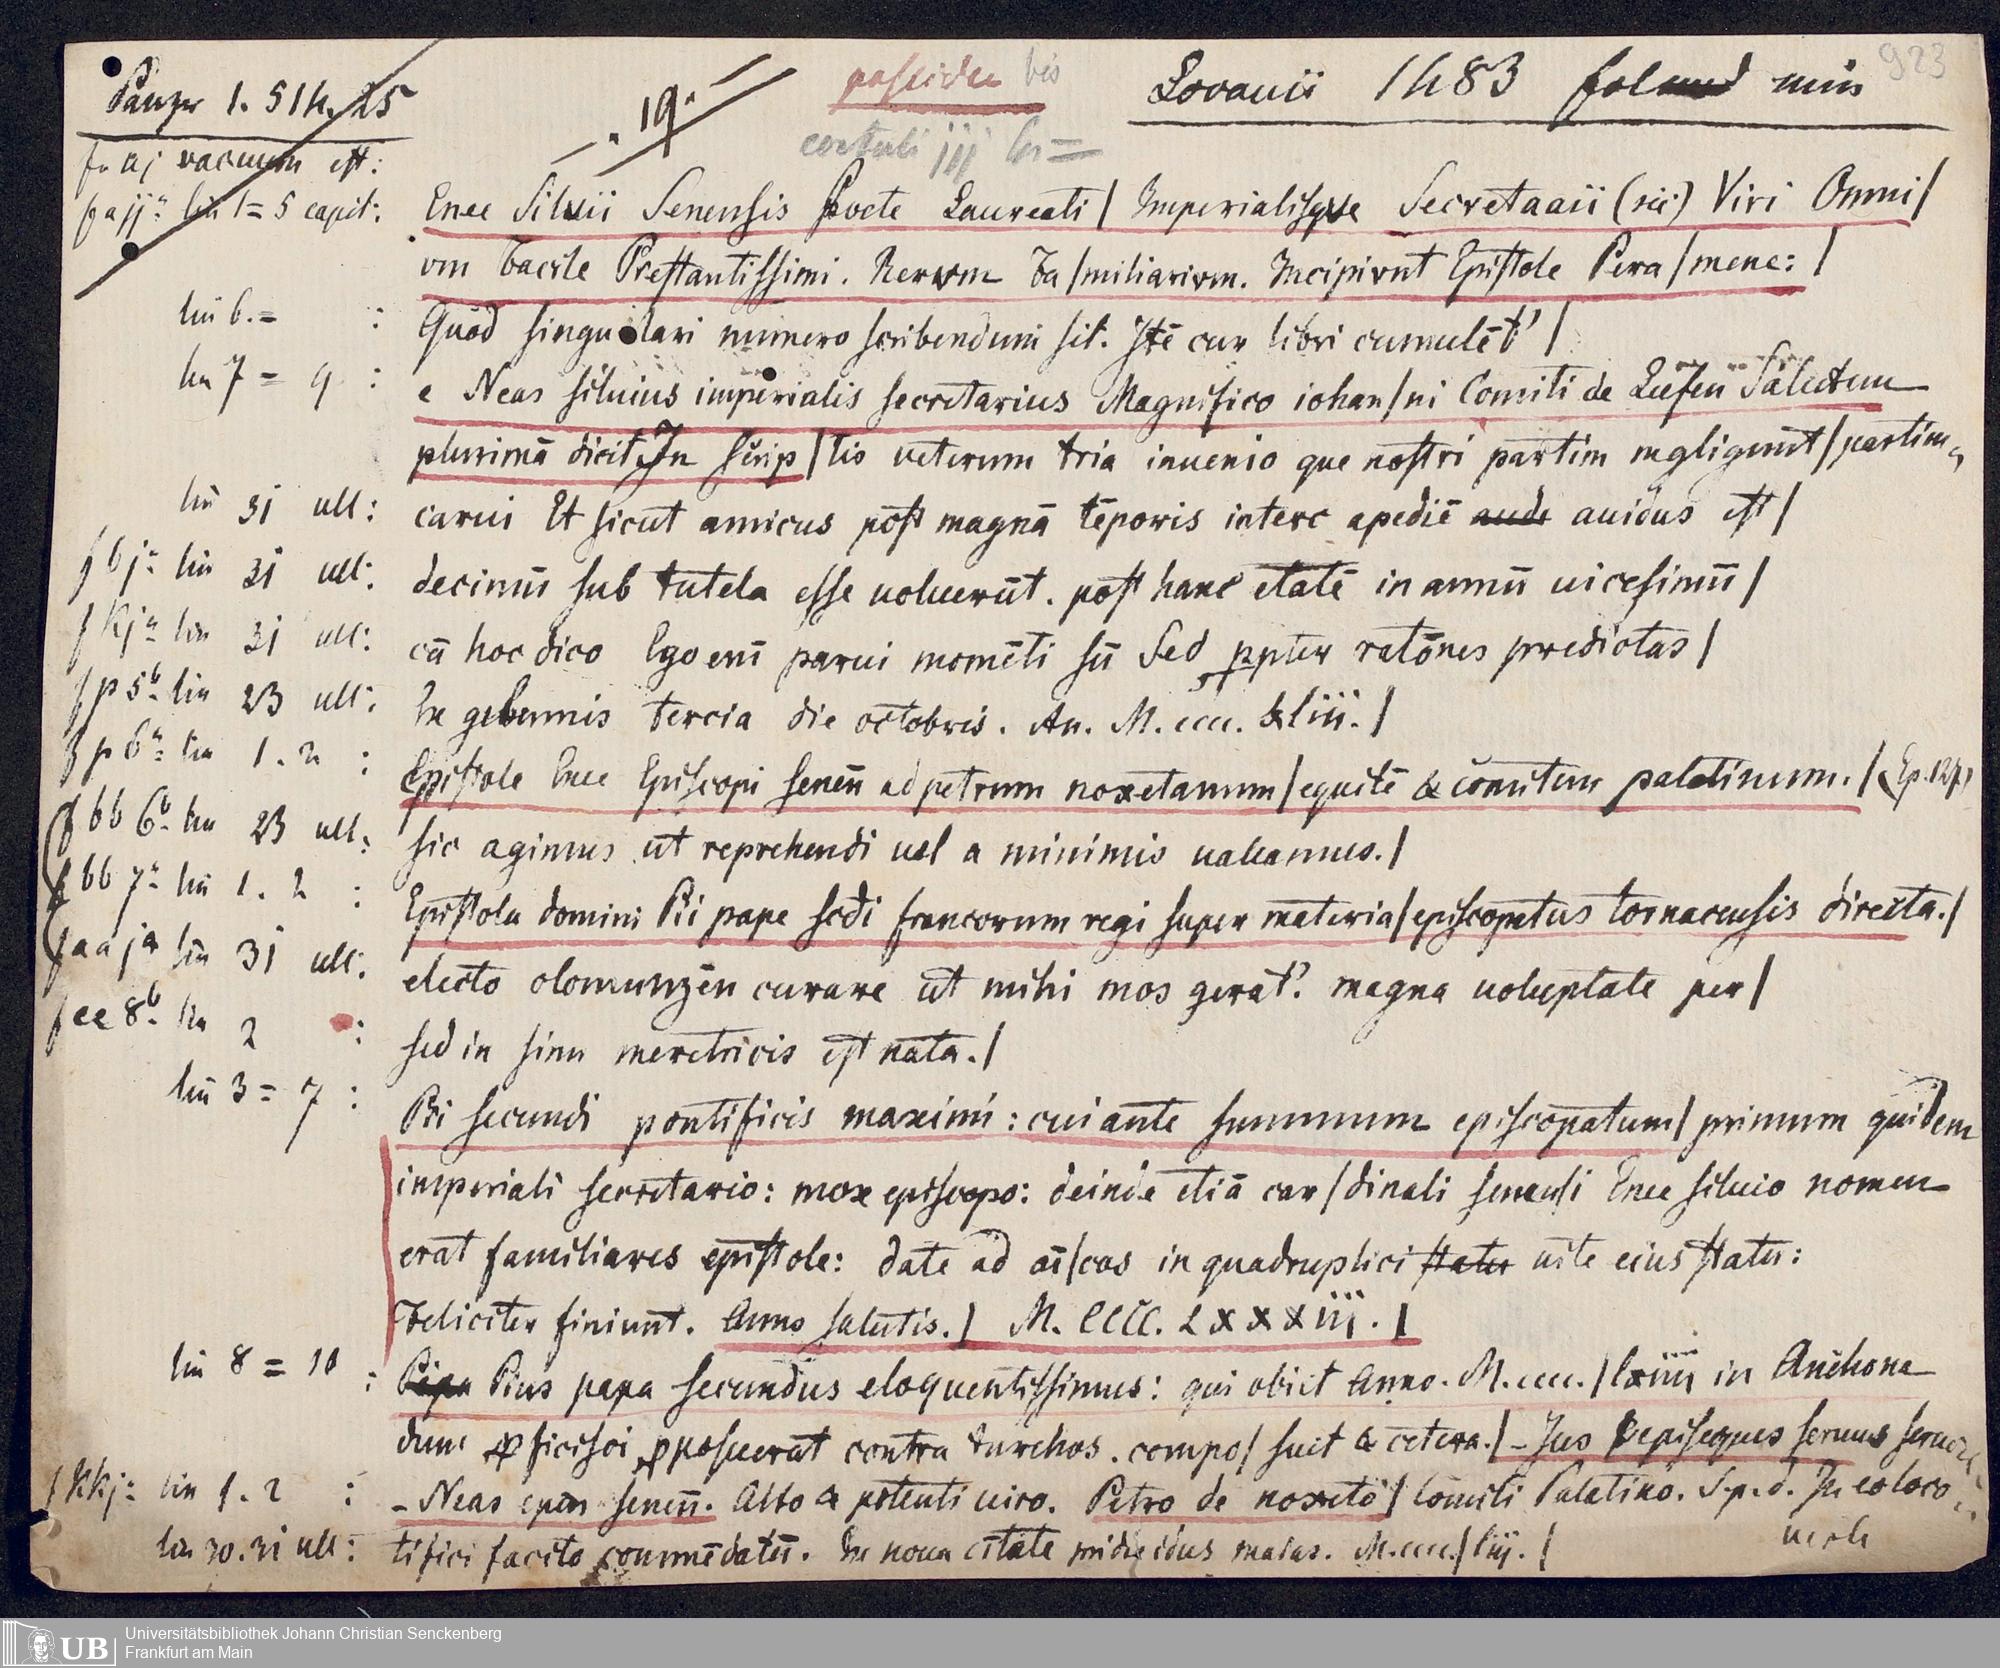 923
Panzer 1. 514. 25
19.
possideo bis
Lovanii 1483 fol min
contuli jij
f. aj vacuum est:
f ajja lin 1=5 capit: Enee Siluii Senensis Poete Laureati / Imperialisque Secretaaii (sic) Viri Omni/
vm Facile Prestantissimi. Rerum Fa/miliarivm. Incipivnt Epistole Pera/mene: /
lin 6.= : Quod singulari numero scribendum sit. Itē cur libri cumulēt' /
lin 7 = 9 : e Neas siluius imperialis secretarius Magnifico iohan/ni Comiti de Lufen Salutem
plurimā dicit In scrip/tis ueterum tria inuenio que nostri partim negligunt / partim
lin 31 ult: carui Et sicut amicus post magnā tēporis interc apediē auidus est /
f bja lin 31 ult: decimū sub tutela esse uoluerūt. post hanc etatē in annū uicesimū /
f kja lin 31 ult: cū hoc dico Ego enī parui momēti sū Sed ppter ratōnes predictas /
f p5b lin 23 ult: Ex gebennis tercia die octobris. An. M. cccc. &liii. /
f p6a lin 1. 2 : Epistole Enee Episcopi senen̄ ad petrum noxetanum / equitē & comitem palatinum. / (Ep. 127)
f bb 6b lin 23 ult: sic agimus ut reprehendi uel a minimis ualeamus. /
f bb 7a lin 1. 2 : Epistola domini Pii pape scdi francorum regi super materia / episcopatus tornacensis directa. /
f aa ja lin 31 ult: electo olomunzēn curare ut mihi mos gerat'. magna uoluptate per /
f ee 8b lin 2 : sed in sinu meretricis est nata. /
lin 3 = 7 : Pii secundi pontificis maximi: cui ante summum episcopatum / primum quidem
imperiali secretario: mox episcopo: deinde etiā car/dinali senensi Enee siluio nomen
erat familiares epistole: date ad ai/cos in quadruplici uite eius statu:
Feliciter finiunt. Anno salutis. / M. CCCC. LXXXiii. /
lin 8 = 10 : Pius papa secundus eloquentissimus: qui obiit Anno. M.cccc. / lxiiii in Anchona
dum pficisci pposuerat contra turchos. compo/suit & cetera. / - Ius episcopus seruus
f kkja lin 1. 2 : - Neas epus senen̄. Alto & potenti uiro. Petro de noxeto / Comiti Palatino. S.p.d. In eo loco
uerle
lin 30. 31 ult: tifici facito commēdatū. Ex noua ciutate pridie idus maias. M.cccc./liij. /
UB
Universitätsbibliothek Johann Christian Senckenberg
Frankfurt am Main